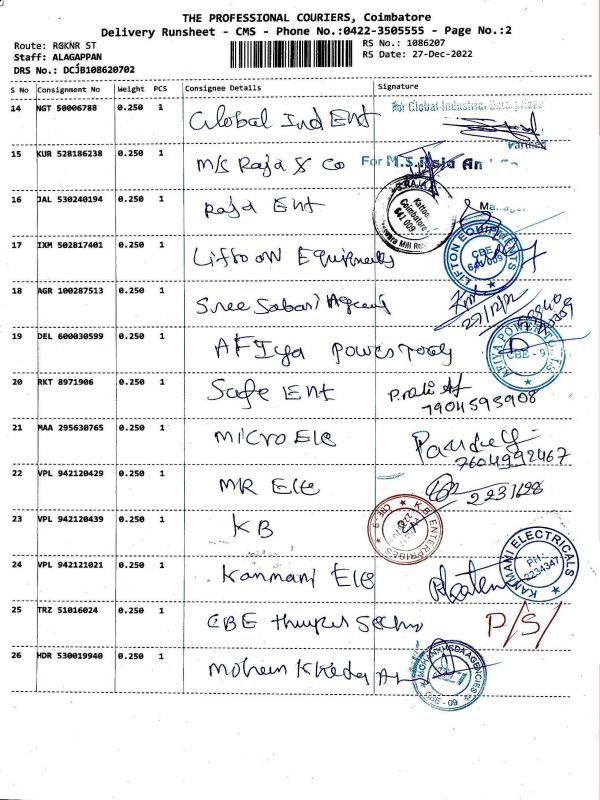 THE PROFESSIONAL COURIERS, Coimbatore
Delivery Runsheet - CMS - Phone No.:0422-3505555 - Page No.:2
Route: RGKNR ST
RS No.: 1086207
Staff: ALAGAPPAN
RS Date: 27-Dec-2022
DRS No.: DCJB108620702
S No Consignment No Weight PCS Consignee Details Signature
14 NGT 50006788 0.250 1 Global Ind Ent
For Global Industrial
15 KUR 528186238 0.250 1 M/s Raja & Co
For M.S.Raja An
16 JAL 530240194 0.250 1 Raja Ent
S.RAJA
Kattoor
Coimbatore
641 009
Manager
17 IXM 502817401 0.250 1 Liftoon Equipments
LIFTON EQUIPMENTS
CBE
641 009
18 AGR 100287513 0.250 1 Sree Sabari Agency
27/12/22
19 DEL 600030599 0.250 1 AFIya Powertools
AFIYA POWER TOOLS
CBE - 9
20 RKT 8971906 0.250 1 Safe Ent
7904593908
21 MAA 295630765 0.250 1 Micro Ele
7604992467
22 VPL 942120429 0.250 1 MR Ele
2231698
23 VPL 942120439 0.250 1 KB
K.B ENTERPRISES
CBE-9
24 VPL 942121021 0.250 1 Kanmani Ele
KANMANI ELECTRICALS
PH:
2234347
25 TRZ 51016024 0.250 1 CBE
P/S/
26 HDR 530019940 0.250 1 Mohan Kheda
MOHANKHEDA AGENCIES
CBE - 09